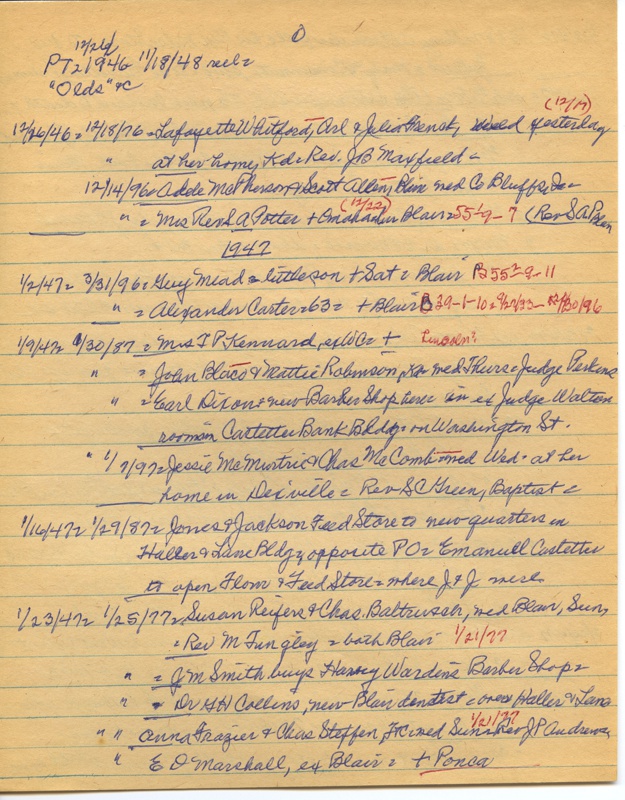 0
12/26/
PT = 1946 11/18/48 reel =
"Olds" &c
(12/17)
12/26/46 = 12/18/76 = Lafayette Whitford, Arl & Julia French, wed yesterday
" at her home, Kd = Rev. J B Maxfield =
12/14/96 = Adda McPherson & Scott Allen, Blair wed Co Bluffs, Ia =
(12/22)
" = Mrs Rev S A Potter + Omaha bur Blair = 55-1-9-7 (Rev S A Blair
1947
1/2/47 = 3/31/96 = Guy Mead = little son + Sat = Blair B 55-2-9-11
" = Alexander Carter = 63 = + Blair B 29-1-10 = 9/27/33 - 12/30/96
1/9/47 1/30/87 = Mrs T P Kennard, ex WC = + Lincoln?
" = John Blaco & Mattie Robinson, wed Thurs = Judge Perkins
" = Earl Dixon = new Barber Shop here in ex Judge Walton
room in Castetter Bank Bldg = on Washington St.
" 1/7/97 = Jessie McMurtrie & Chas McComb = wed Wed. at her
home in De'ville = Rev S C Green, Baptist =
1/16/47 = 1/29/87 = Jones & Jackson Feed Store to new quarters in
Haller & Lane Bldg, opposite PO = Emanuel Castetter
to open Flour & Feed Store = where J & J were
1/23/47 = 1/25/77 = Susan Reifers & Chas. Baltrusch, wed Blair, Sun,
= Rev M Tungley = both Blair 1/21/77
" = J M Smith buys Harvey Wardin's Barber Shop =
" = Dr G H Collins, new Blair dentist = over Haller & Lane
1/21/77
" " Anna Frazier & Chas Steffen, wed Sun = Rev J P Andrews
" E D Marshall, ex Blair = + Ponca